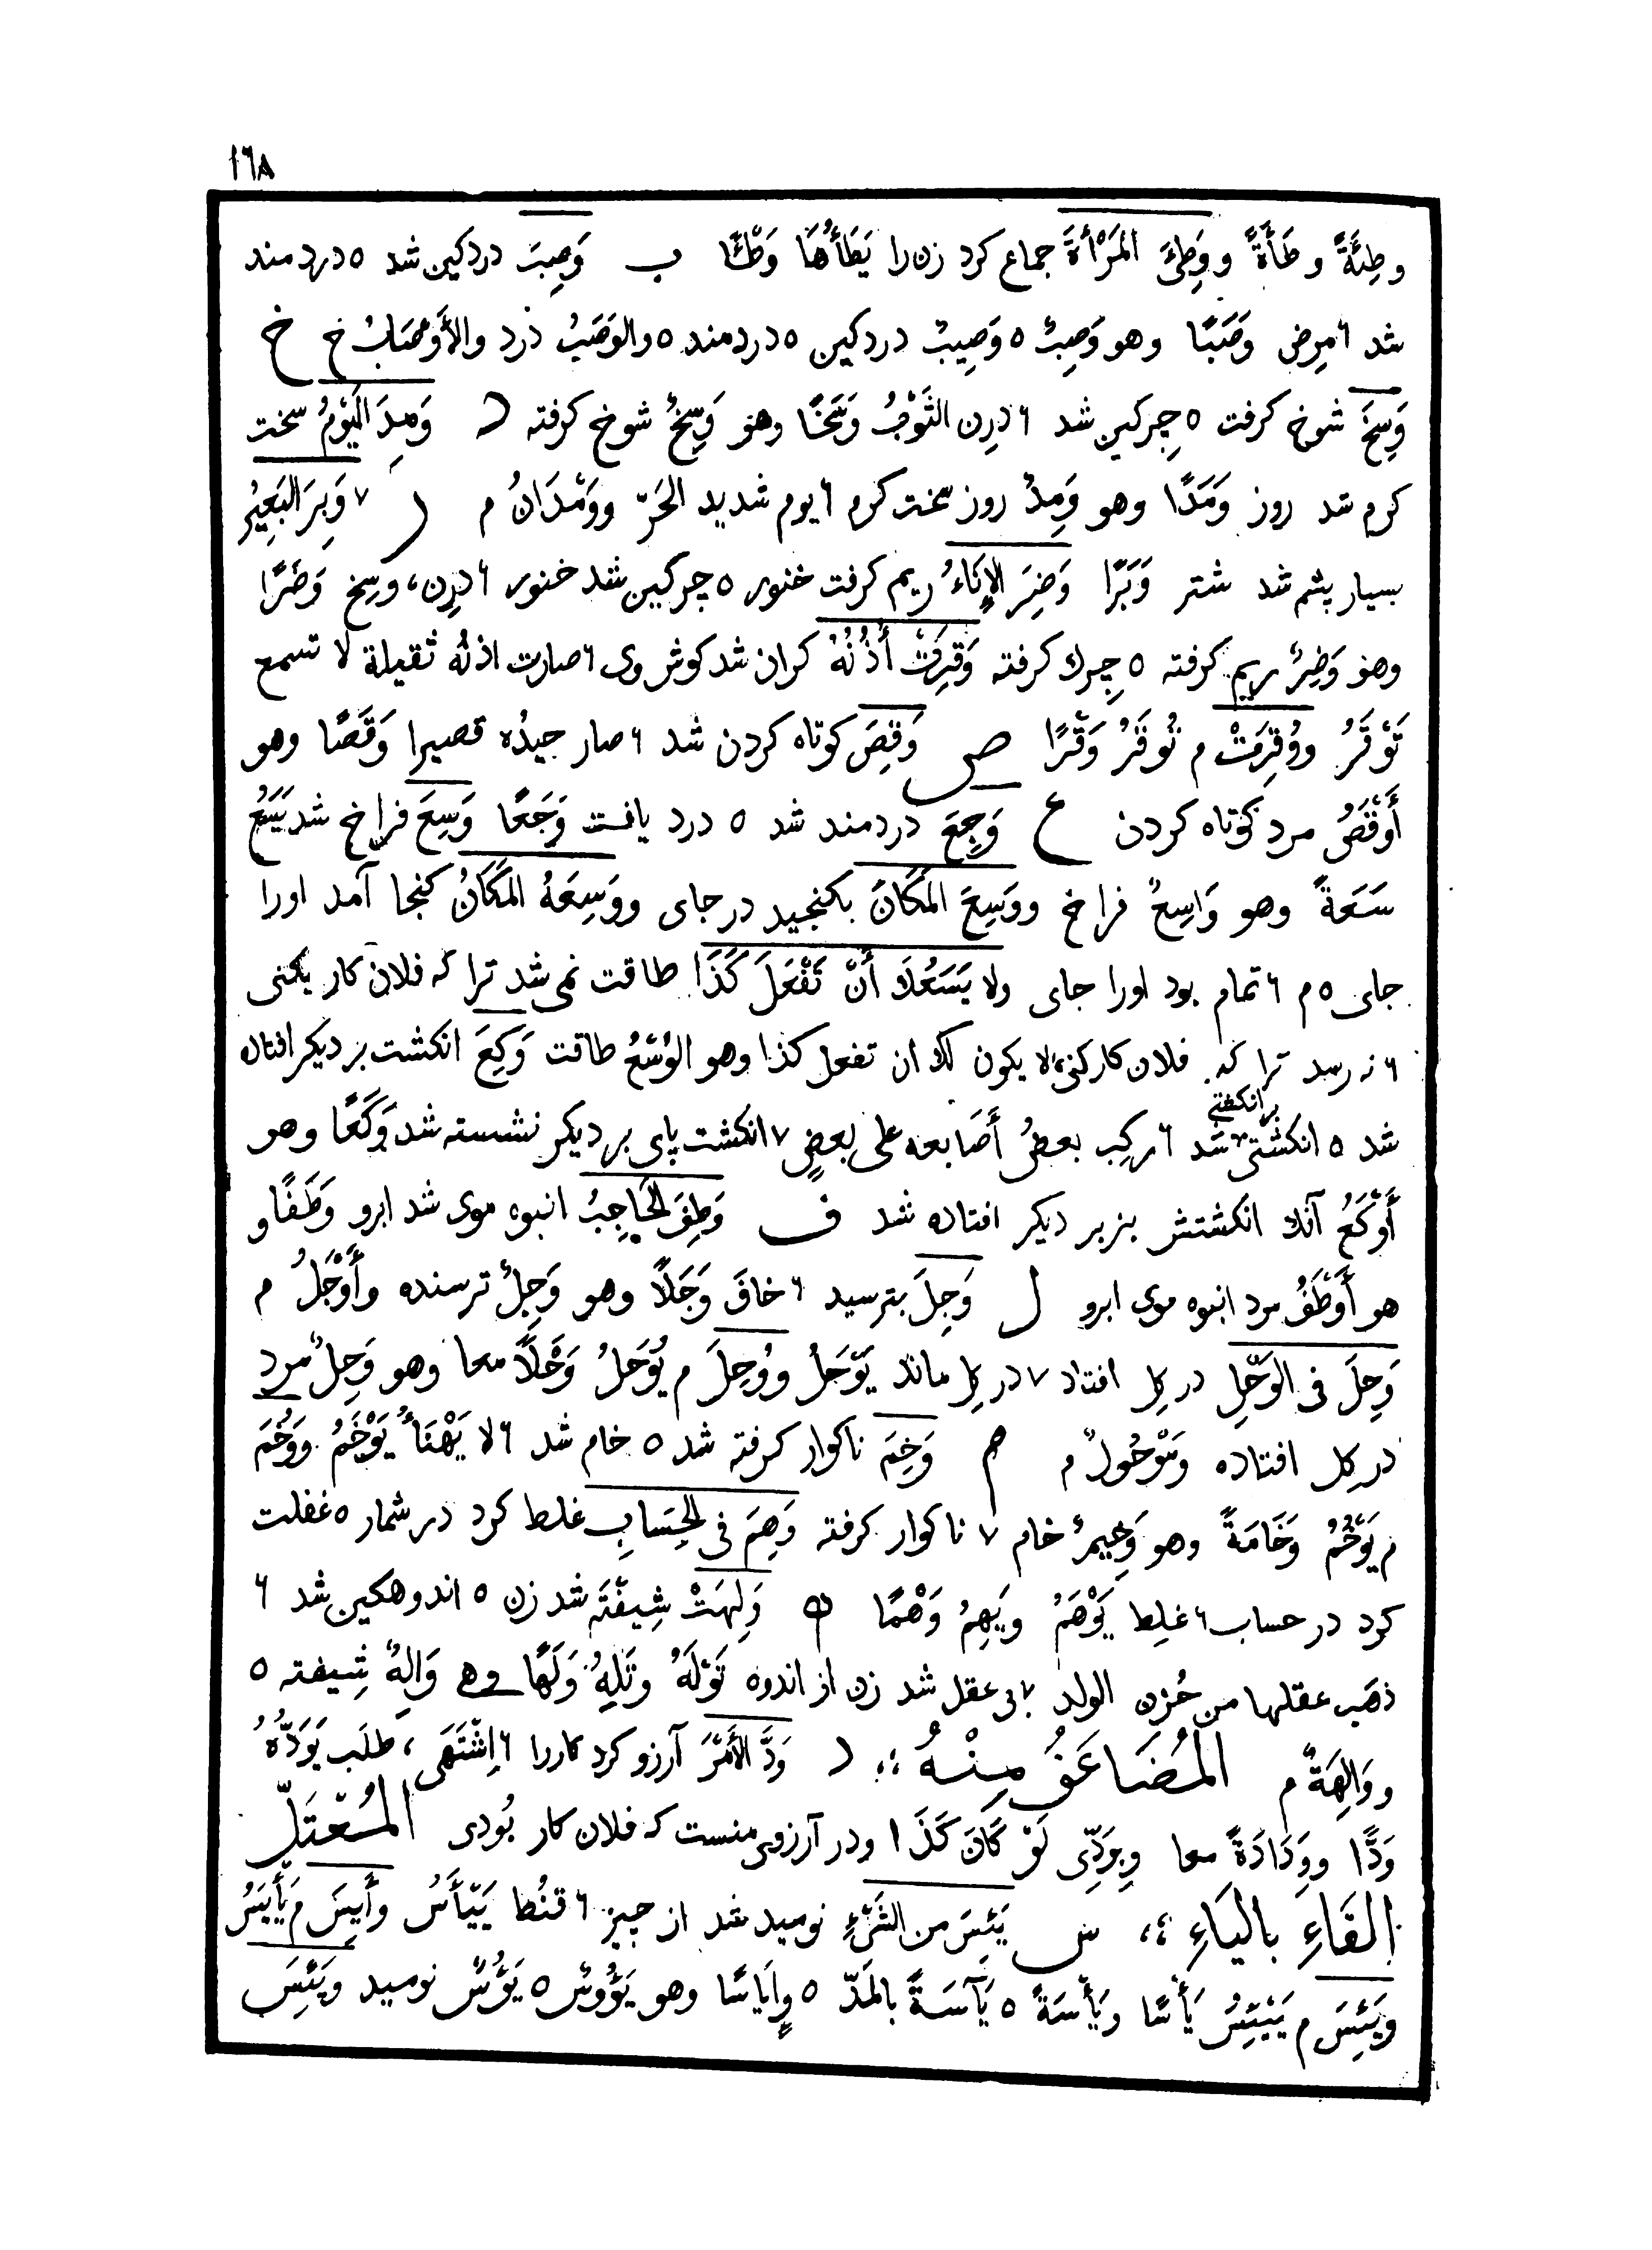 ١٦٨
وطِئَةً وطَأَةً ووَطِئَ المَرْأَةَ جماع کرد زن را يَطَأُهَا وَطْئًا ب وَصِبَ دردکین شد ٥ دردمند
شد ٦ مرِض وَصَبًا وهو وَصِبٌ ٥ وَصِيبٌ دردکین ٥ دردمند ٥ والوَصَبُ درد والأَوْصَابُ خ خ
وَسِخَ شوخ کرفت ٥ چرکین شد ٦ درِن الثَّوْبُ وَسَخًا وهو وَسِخٌ شوخ کرفته د وَمِدَ اليَوْمُ سخت
کرم شد روز وَمَدًا وهو وَمِدٌ روز سخت کرم ٦ یوم شدید الحَرّ ووَمْدَانُ م ر ٧ وَبِرَ البَعِيرُ
بسیار پشم شد شتر وَبَرًا وَضِرَ الإِنَاءُ ریم کرفت خنور ٥ چرکین شد خنور ٦ درِن، وسِخ وَضَرًا
وهو وَضِرٌ ریم کرفته ٥ چِرك کرفته وَقِرَتْ أُذُنُهُ کران شد کوش وی ٦ صارت اذنُه ثقیلة لا تسمع
تَوْقَرُ ووُقِرَتْ م تُوقَرُ وَقْرًا ص وَقِصَ کوتاه کردن شد ٦ صار جیدُه قصیرا وَقَصًا وهو
أَوْقَصُ مرد کوتاه کردن ع وَجِعَ دردمند شد ٥ درد یافت وَجَعًا وَسِعَ فراخ شد يَسَعُ
سَعَةً وهو وَاسِعٌ فراخ ووَسِعَ المَكَانُ بکنجید در جای ووَسِعَهُ المَكَانُ کنجا آمد اورا
جای ٥ م ٦ تمام بود اورا جای ولا يَسَعُكَ أَنْ تَفْعَلَ كَذَا طاقت نمی شد ترا که فلان کار یکنی
٦ نه رسد ترا که فلان کار کنی لا یکون لك ان تفعل کذا وهو الوُسْعُ طاقت وَكِعَ انکشت بر دیکر افتاده
شد ٥ انکشتی بر انکشتی شد ٦ رکِب بعضُ أَصَابعه علی بعضٍ ٧ انکشت پای بر دیکر نشسته شد وَكَعًا وهو
أَوْكَعُ آنك انکشتش بر بر دیکر افتاده شد ف وَطِفَ الحَاجِبُ انبوه موی شد ابرو وَطَفًا و
هو أَوْطَفُ مرد انبوه موی ابرو ل وَجِلَ بترسید ٦ خافَ وَجَلًا وهو وَجِلٌ ترسنده وأَوْجَلُ م
وَحِلَ فی الوَحْلِ در کل افتاد ٧ در کل ماند يَوْحَلُ ووُحِلَ م يُوْحَلُ وَحْلًا معا وهو وَحِلٌ مرد
در کل افتاده ومَوْحُولٌ م م وَخِمَ ناکوار کرفته شد ٥ خام شد ٦ لا يَهْنَأُ يَوْخَمُ ووَخُمَ
م يَوْخُمُ وَخَامَةً وهو وَخِيمٌ خام ٧ ناکوار کرفته وَهِمَ فی الحِسَابِ غلط کرد در شمار ٥ غفلت
کرد در حساب ٦ غلِط يَوْهَمُ ويَهِمُ وَهْمًا ه وَلِهَتْ شِیفْتَه شد زن ٥ اندوهکین شد ٦
ذهَب عقلها من حُزن الولد ٧ بی عقل شد زن از اندوه تَوْلَهُ وتَلِهُ وَلَهًا وهی وَالِهٌ شیفته ٥
ووَالِهَةٌ م المُضَاعَفُ مِنْهُ د وَدَّ الأَمْرَ آرزو کرد کاررا ٦ اِشْتَهَى، طلَب يَوَدُّهُ
وَدًّا ووَدَادَةً معا وبِوَدِّی لَوْ كَانَ كَذَا ودر آرزوی منست که فلان کار بُودی المُعْتَلّ
الفَاءِ بِاليَاءِ س يَئِسَ من الشَّيْءِ نومید شد از چیز ٦ قنُط يَيْأَسُ وأَيِسَ م يَأْيَسُ
ويَئِسَ م يَيْئِسُ يَأْسًا ويَأْسَةً ٥ يَآسَةً بالمَدّ ٥ وإِيَاسًا وهو يَؤُوسٌ ٥ يَؤُسٌ نومید ويَئِسَ